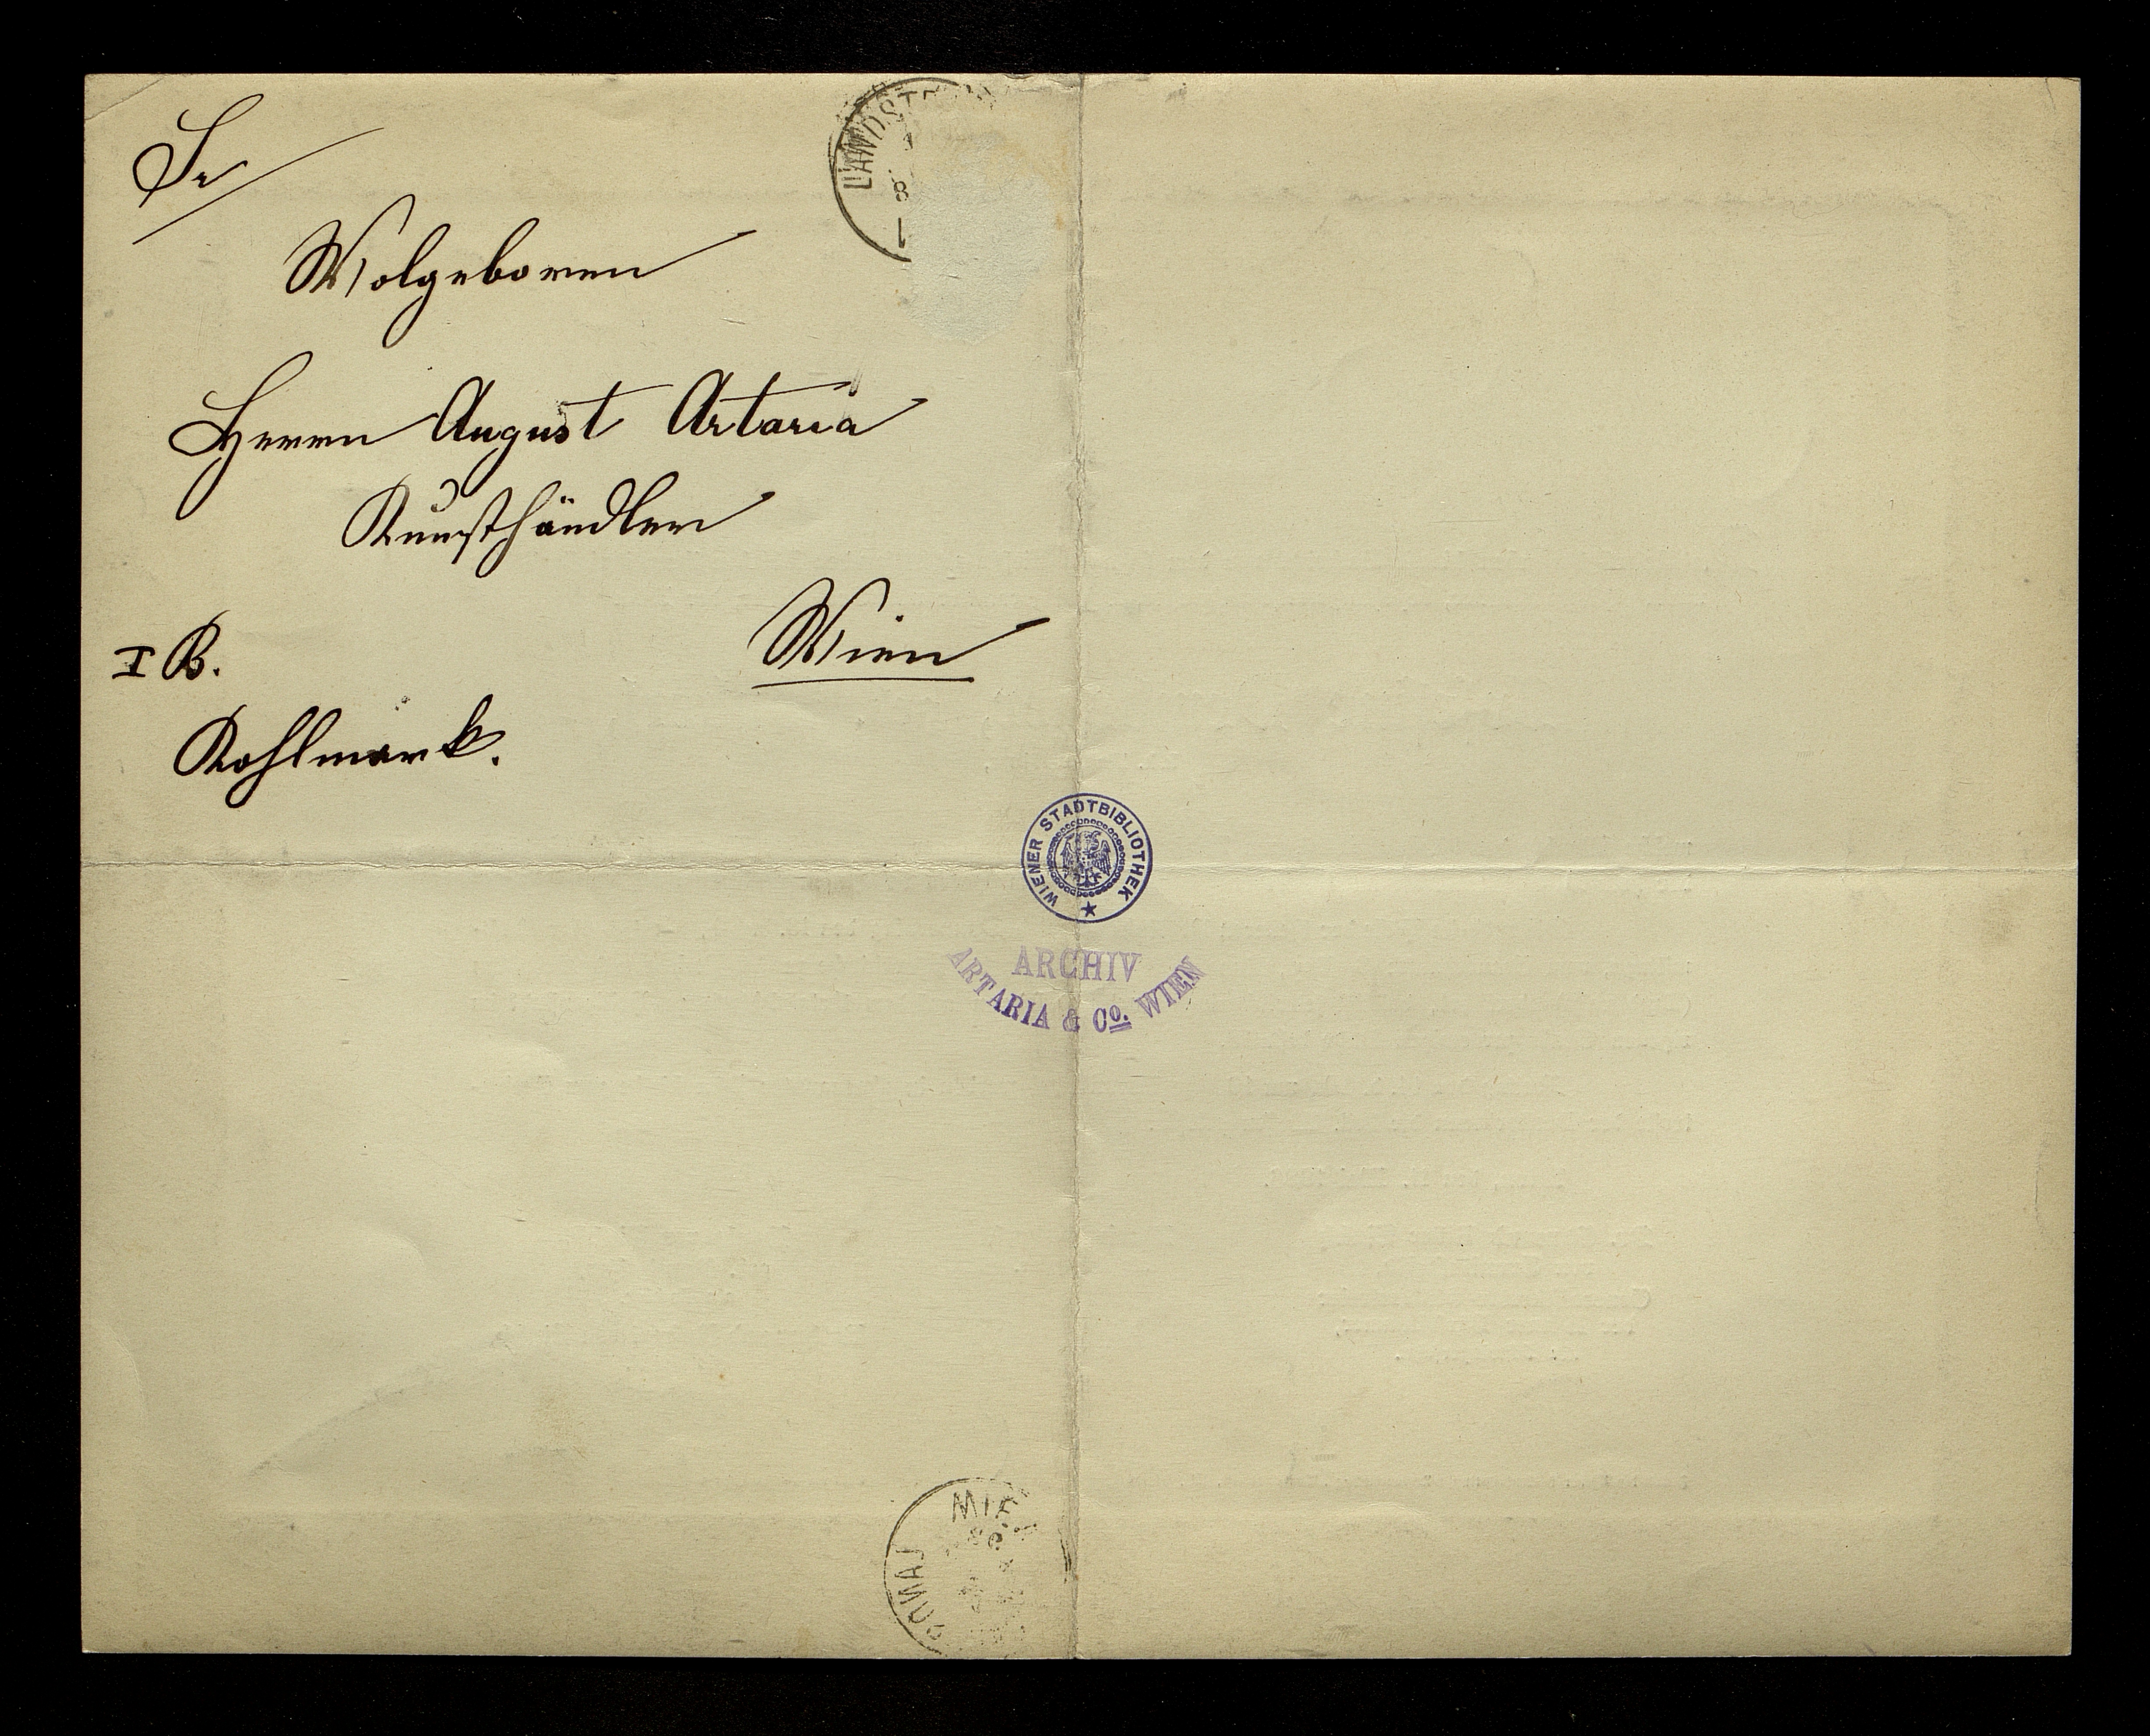 Sr
Wolgeboren
Herrn August Artaria
Kunsthändler
Wien
I B.
Kohlmark.
WIENER STADTBIBLIOTHEK
ARCHIV
ARTARIA & Co. WIEN